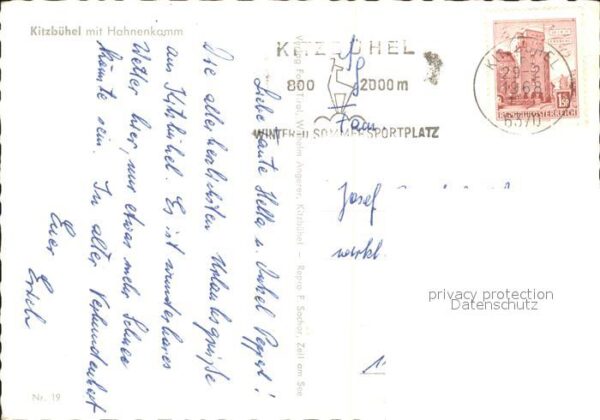 Kitzbühel mit Hahnenkamm
Liebe Tante Hella u. Onkel Pepperl!
Die allerherzlichsten Urlaubsgrüße
aus Kitzbühel. Es ist wunderbares
Wetter hier, nur etwas mehr Schnee
könnte sein. In alter Verbundenheit
Euer
Erich
Nr. 19
Verlag Foto Tirol, Wilhelm Angerer, Kitzbühel — Repro F. Sochor, Zell am See
KITZBÜHEL
800 2000 m
WINTER- U. SOMMERSPORTPLATZ
KITZBÜHEL
1968
6370
REPUBLIK ÖSTERREICH
Fam
Josef
privacy protection
Datenschutz